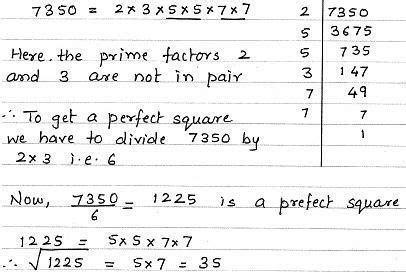 7350 = 2×3×5×5×7×7
Here, the prime factors 2
and 3 are not in pair
∴ To get a perfect square
we have to divide 7350 by
2×3 i.e. 6
2 | 7350
5 | 3675
5 | 735
3 | 147
7 | 49
7 | 7
| 1
Now, 7350/6 = 1225 is a prefect square
1225 = 5×5×7×7
∴ √1225 = 5×7 = 35